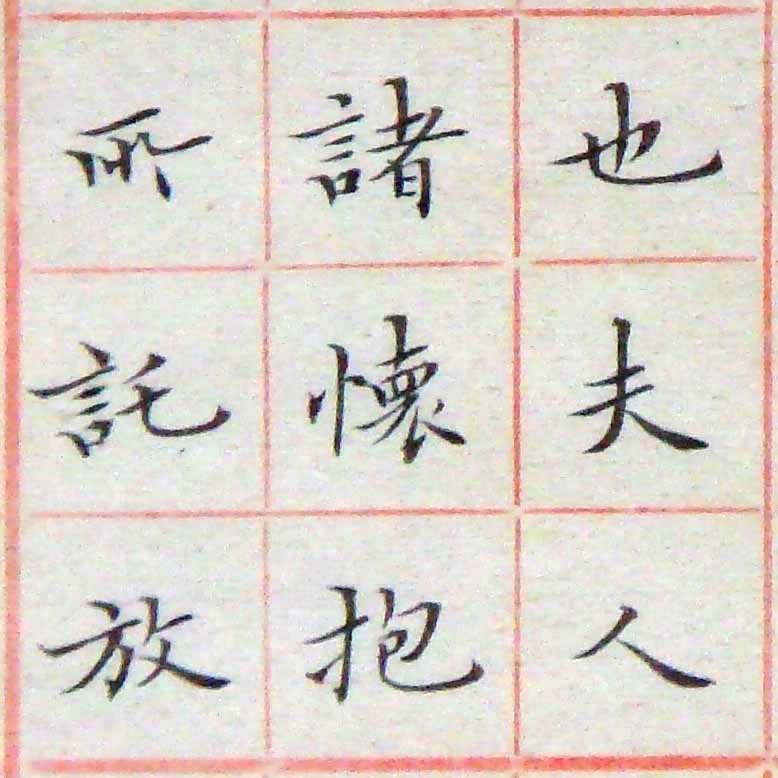 也夫人
諸懷抱
所託放